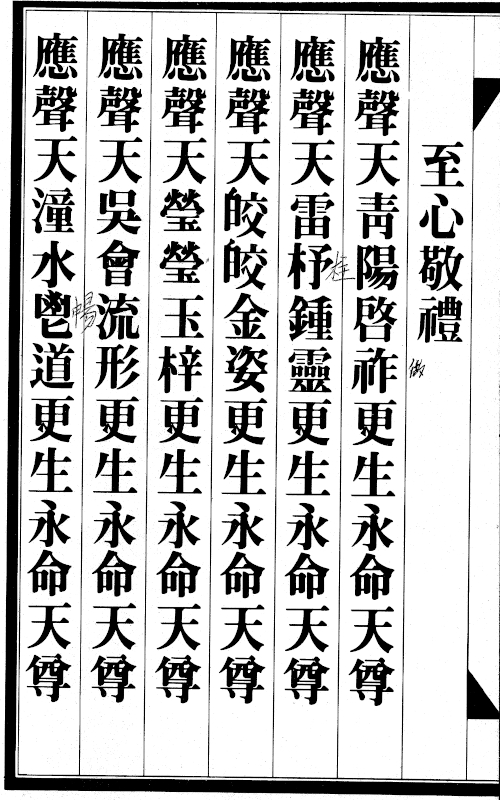 至心敬禮
應聲天青陽啓祚更生永命天尊
應聲天雷杼鍾靈更生永命天尊
應聲天皎皎金姿更生永命天尊
應聲天瑩瑩玉梓更生永命天尊
應聲天吳會流形更生永命天尊
應聲天潼水鬯道更生永命天尊
暢